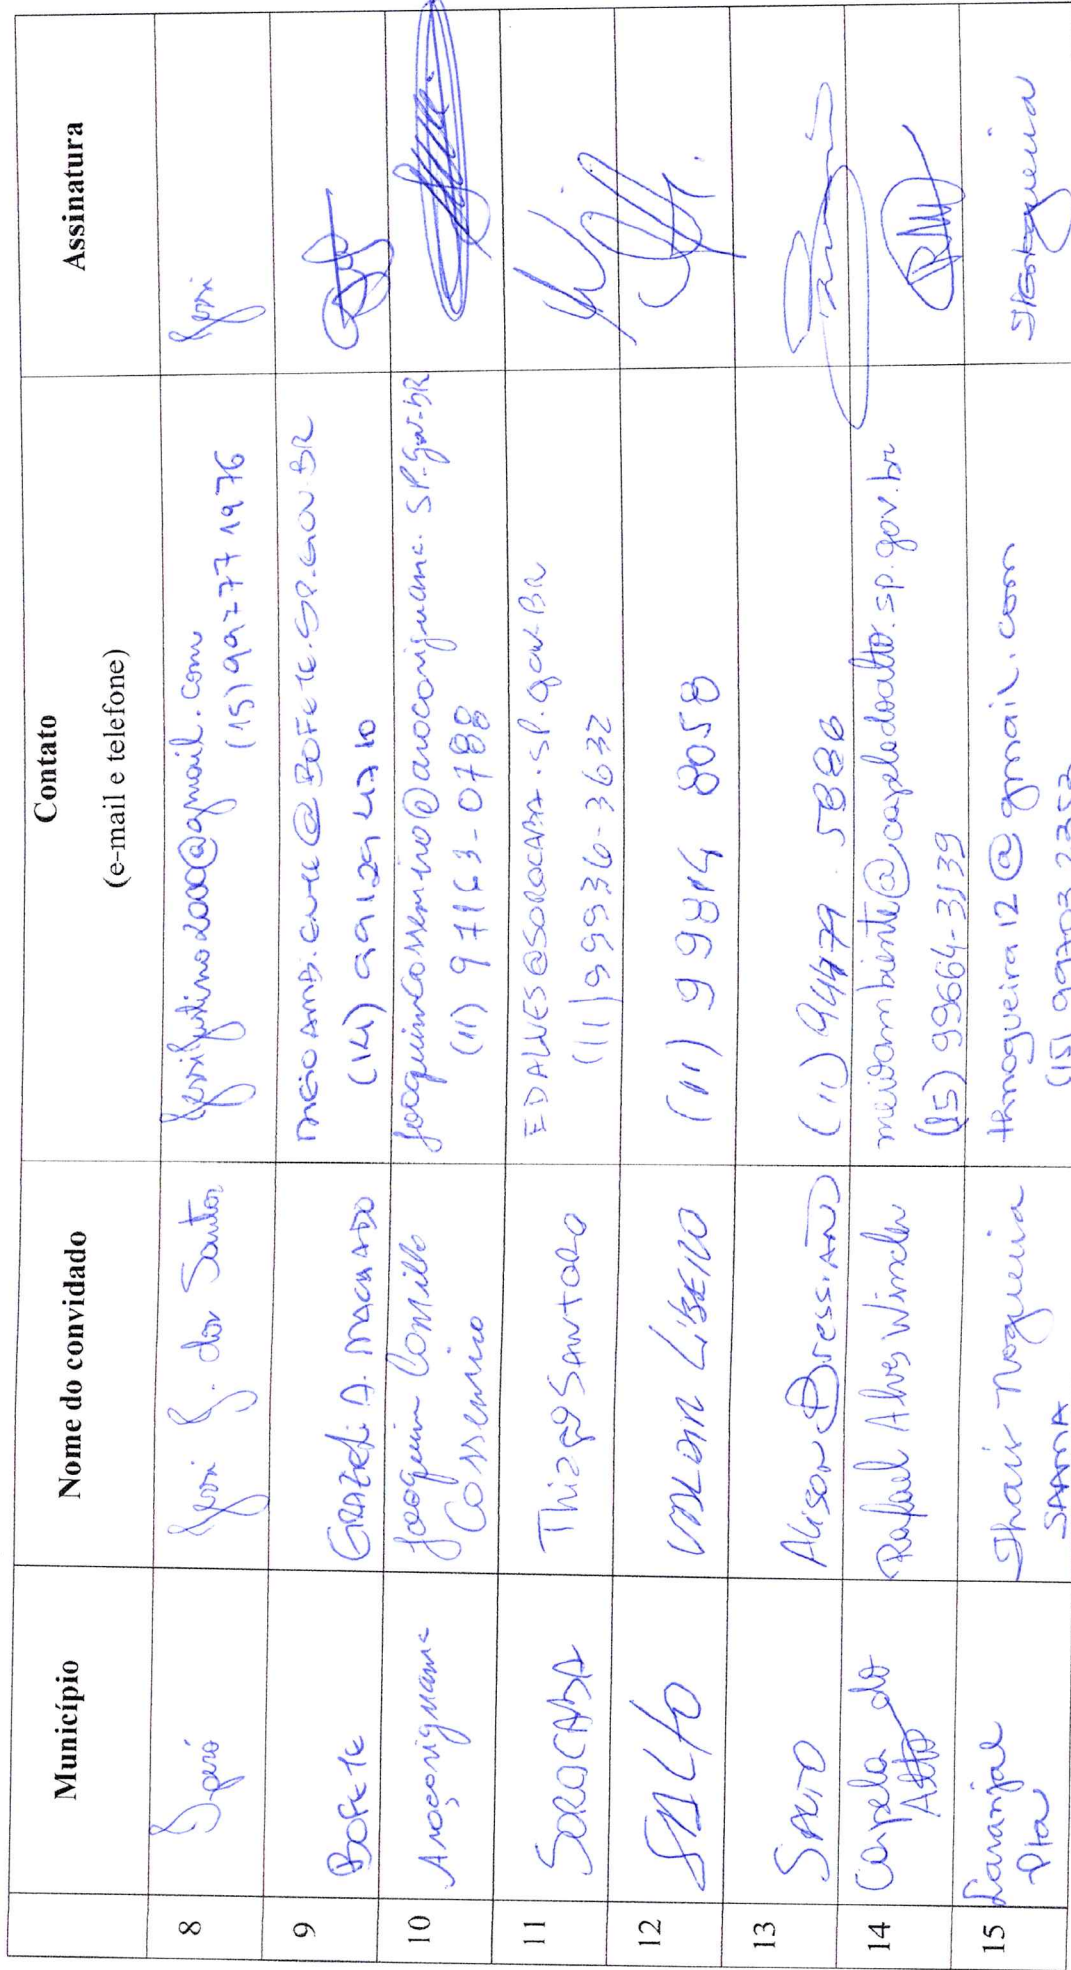 Município
Nome do convidado
Contato
(e-mail e telefone)
Assinatura
8
Iperó
dos Santos
(15) 992771976
9
BOFETE
MACHADO
MEIOAMBIENTE@BOFETE.SP.GOV.BR
(14) 991294710
10
Araçariguama
Joaquim Camillo
Cossermino
joaquimcossermino@aracariguama.SP.gov.bR
(11) 97163-0788
11
SOROCABA
Thiago SANTORO
EDALVES@SOROCABA.SP.gov.BR
(11) 99936-3632
12
SALTO
VALDIR LIBERIO
(11) 99814 8058
13
SALTO
Alison BressiANO
(11) 94479.5886
14
Capela do
Alto
Rafael Alves Wincler
meioambiente@capeladoalto.sp.gov.br
(15) 99664-3139
RAW
15
Laranjal
Pta
Thair Nogueira
SAAMA
thnogueira12@gmail.com
(15) 99703 2352
THNogueira